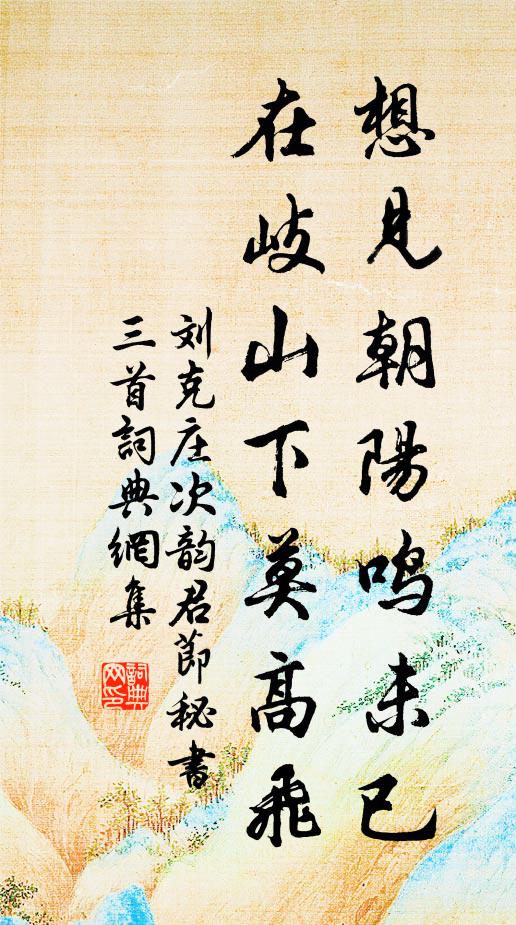 想見朝陽鳴未已
在岐山下莫高飛
刘克庄次韵君節秘書
三首詞典網集
詞典
网印